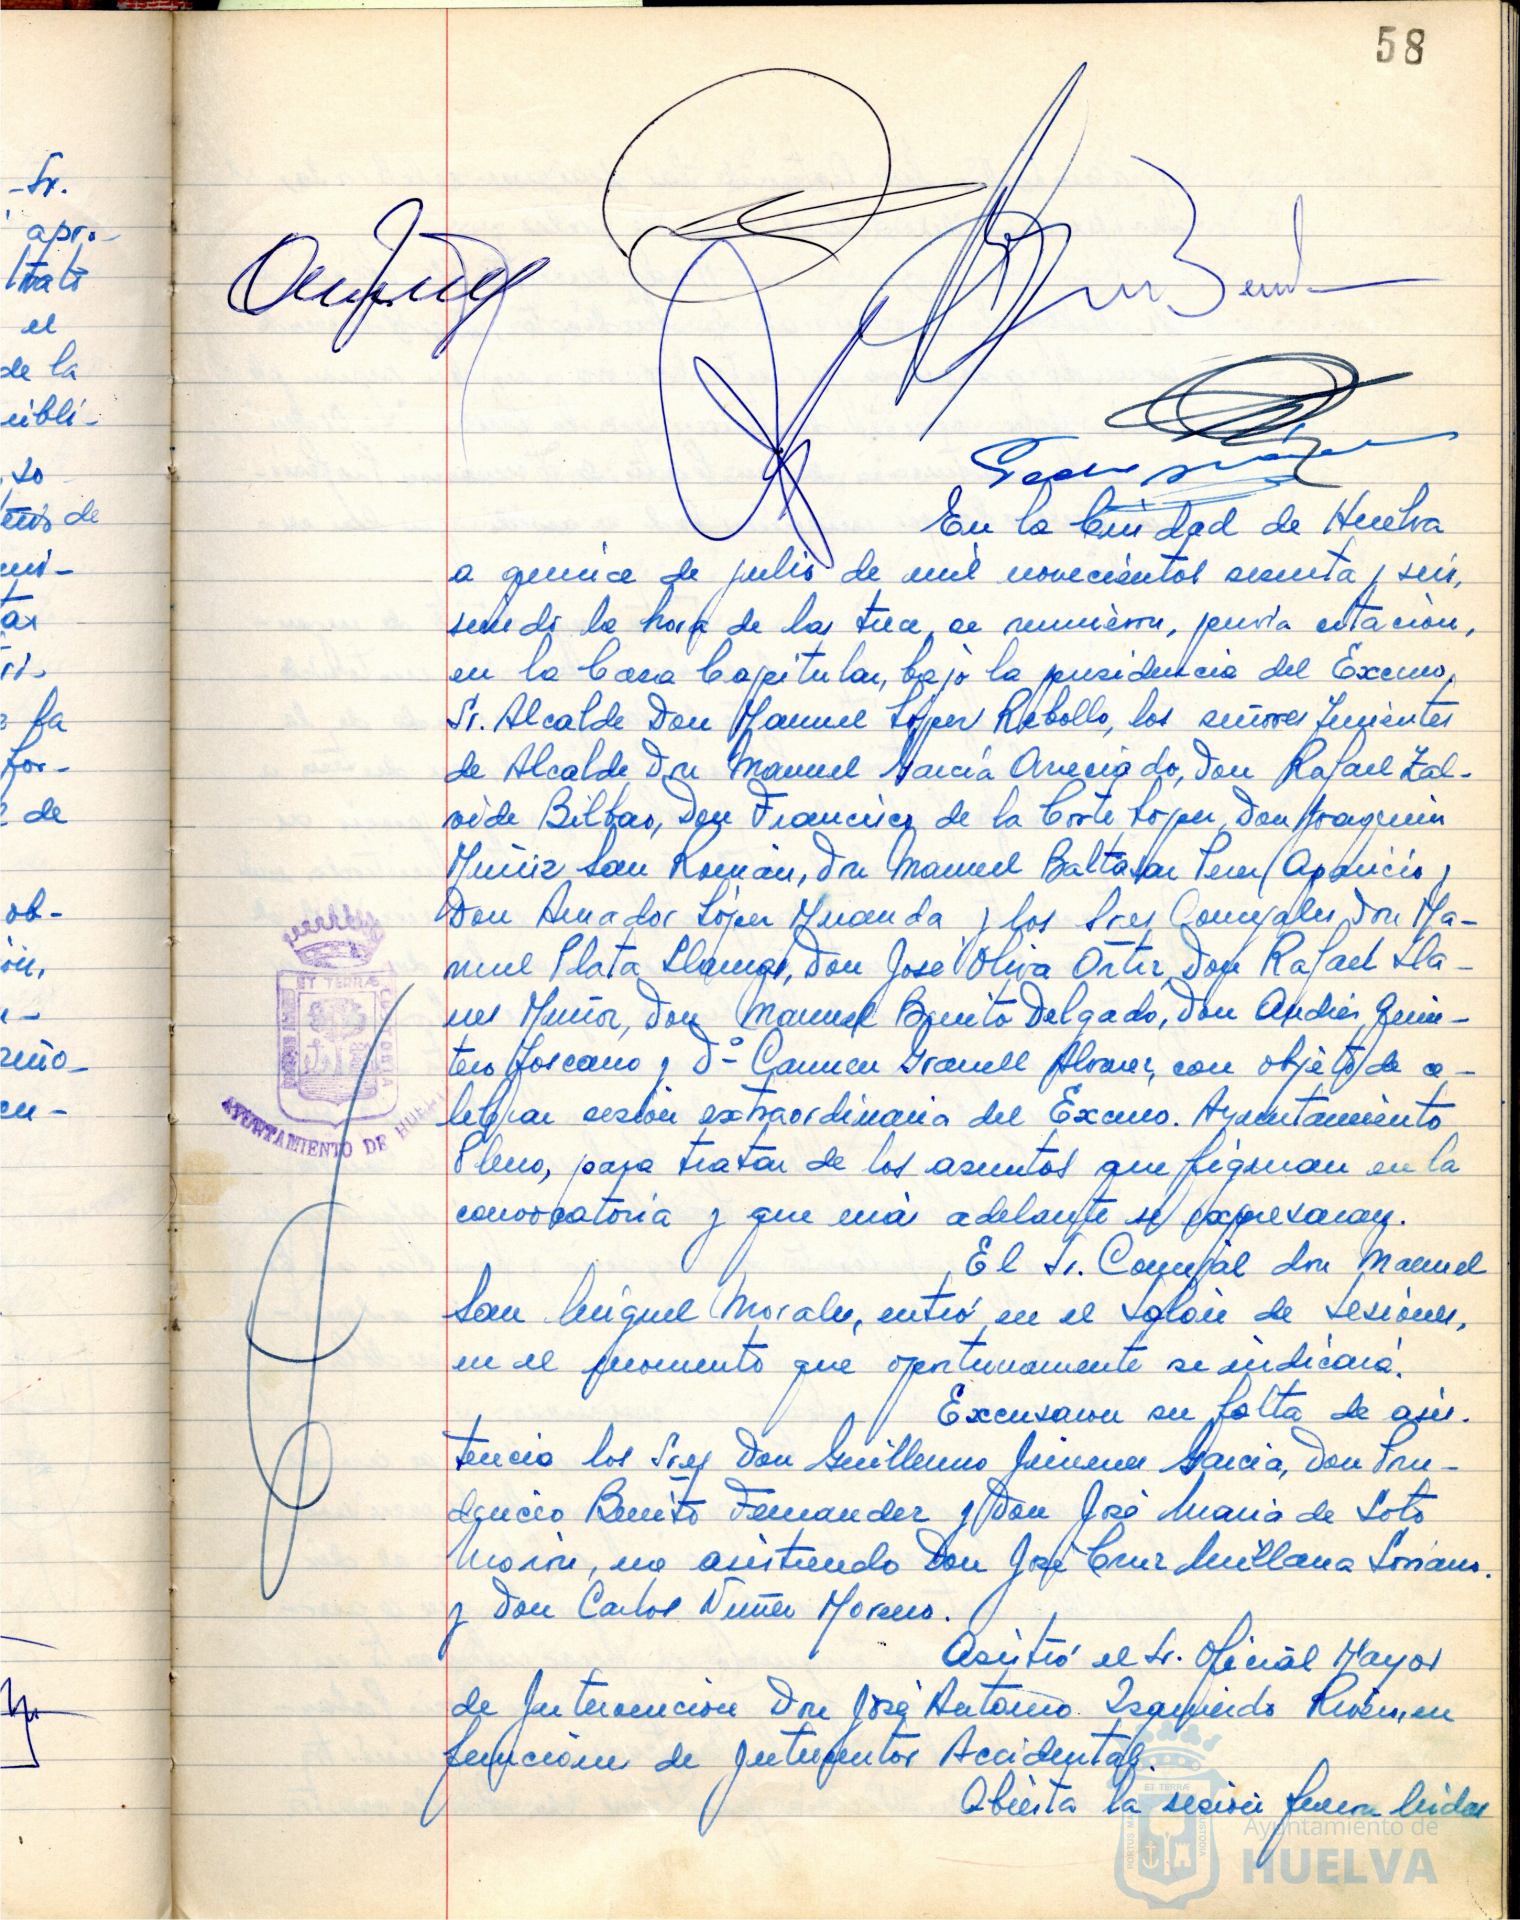 58
-Sr.
apro-
el
de la
so
de
fa
for-
de
ob-
ción,
En la Ciudad de Huelva
a quince de julio de mil novecientos sesenta y seis,
siendo la hora de las trece, se reunieron, previa citación,
en la Casa Capitular, bajo la presidencia del Excmo.
Sr. Alcalde Don Manuel López Rebollo, los señores Tenientes
de Alcalde Don Manuel García Arreciado, Don Rafael Zal-
vide Bilbao, Don Francisco de la Corte López, Don Joaquín
Muñiz San Román, Don Manuel Baltasar Pérez Aparicio y
Don Amador López Miranda y los Sres Concejales, Don Ma-
nuel Plata Don José Oliva Ortiz, Don Rafael Lla-
nes Muñoz, Don Manuel Benito Delgado, Don Andrés Quin-
tero Toscano y Dª Carmen Granell Alvarez, con objeto de ce-
lebrar sesión extraordinaria del Excmo. Ayuntamiento
Pleno, para tratar de los asuntos que figuran en la
convocatoria y que más adelante se expresaran.
El Sr. Concejal don Manuel
San Miguel Morales, entró en el Salón de Sesiones,
en el momento que oportunamente se indicará.
Excusaron su falta de asis-
tencia los Sres Don Guillermo Jimenez García, Don Pru-
dencio Benito Fernandez y Don José María de Soto
Morón, no asistiendo Don José Cruz Millana Soriano
y Don Carlos Núñez Moreno.
Asistió el Sr. Oficial Mayor
de Intervención Don José Antonio Izquierdo en
funciones de Interventor Accidental.
Abierta la sesión fueron leidas
ET TERRAE CUSTODIA
AYUNTAMIENTO DE HUELVA
ET TERRAE
PORTUS MARIS
CUSTODIA
Ayuntamiento de
HUELVA